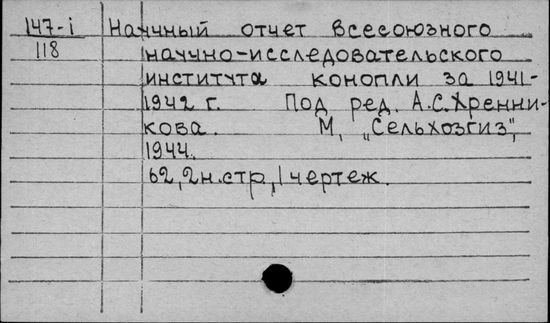 147-i Научный отчет Всесоюзного
118 научно-исследовательского
института конопли за 1941-
1942 г. Под ред. А.С.Хренни-
кова. М, „Сельхозгиз",
1944.
62,2н.стр,1 чертеж.